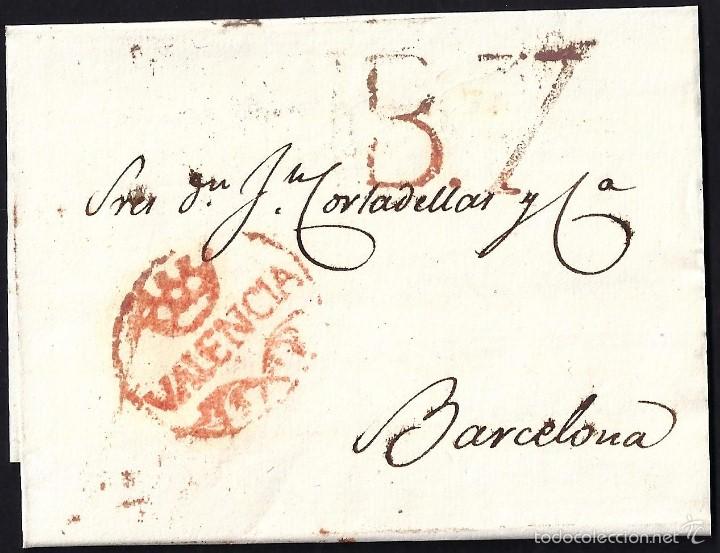 B.7
Sres dn. Jn. Cortadellas y Ca
VALENCIA
Barcelona
todocoleccion.net